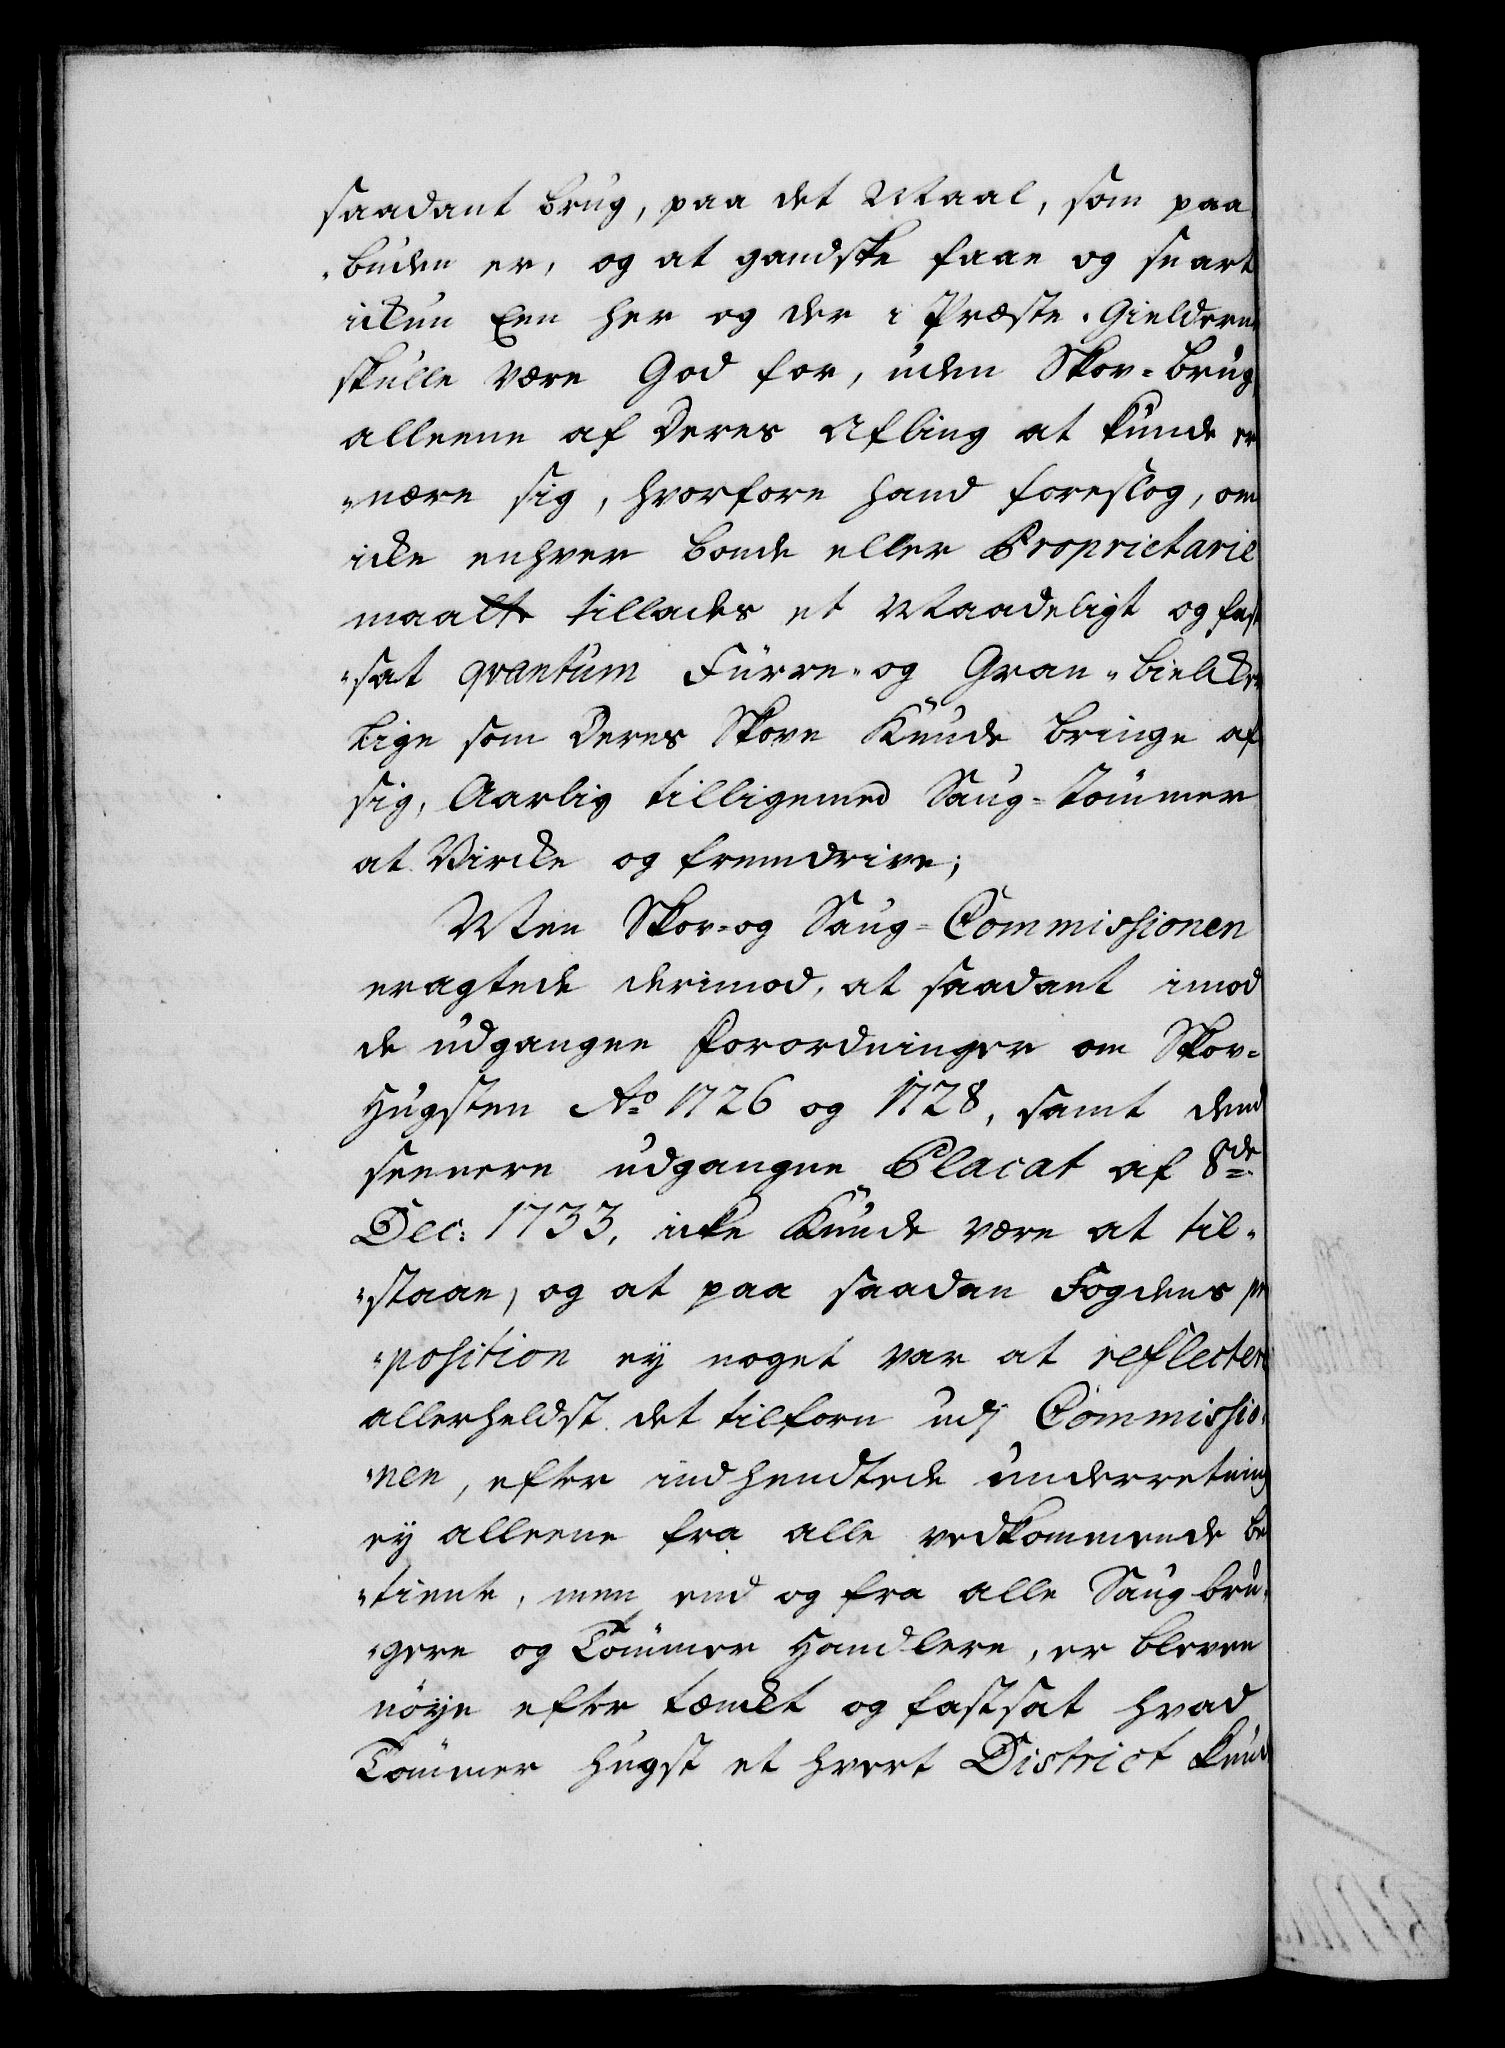 saadant brug, paa det Maal, som paa
-buden er, og at gandske faae og snart
ickun Een her og der i Præste-Gielderne
skulle være God for, uden Skov-brug
alleene af deres Afling at kunde er
-nære sig, hvorfore hand foreslog, om
icke enhver bonde eller Proprietarie
maatte tillades et Maadeligt og fast
-sat qvantum Fürre- og Gran-bielcker
lige som deres Skove kunde bringe af
sig, Aarlig tilligemed Saug-tømmer
at Vircke og fremdrive;
Men Skov- og Saug-Commissionen
eragtede derimod, at saadant imod
de udgangne forordninger om Skov-
Hugsten Ao 1726 og 1728, samt dend
seenere udgangne Placat af 8de
Dec: 1733, icke kunde være at til-
-staae, og at paa saadan Fogdens pro
-position ey noget var at reflectere
allerheldst det tilforn udj Commissio-
-nen, efter indhendtede underretning
ey alleene fra alle vedkommende be
-tiente, men end og fra alle Saugbru-
-gere og Tømmer Handlere, er bleven
nøye efter tænckt og fastsat hvad
Tømmer hugst et hvert District kund